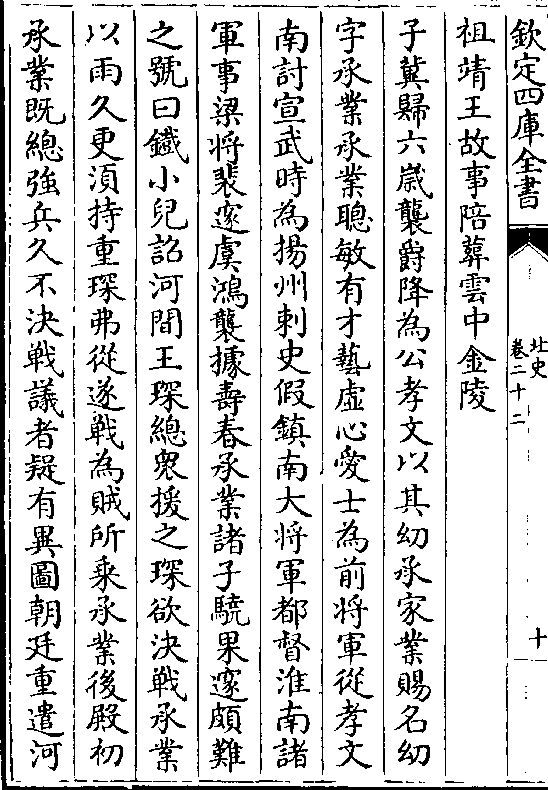 欽定四庫全書
北史
卷二十二
十
祖靖王故事陪葬雲中金陵
子冀歸六嵗襲爵降為公孝文以其㓜承家業賜名㓜
字承業承業聰敏有才藝虛心愛士為前將軍從孝文
南討宣武時為揚州刺史假鎮南大将軍都督淮南諸
軍事梁将裴邃虞鴻襲據壽春承業諸子驍果邃頗難
之號曰鐵小兒詔河間王琛總衆援之琛欲決戰承業
以雨久更湏持重琛弗從遂戰為賊所乗承業後殿初
承業既總強兵久不決戰議者疑有異圖朝廷重遣河